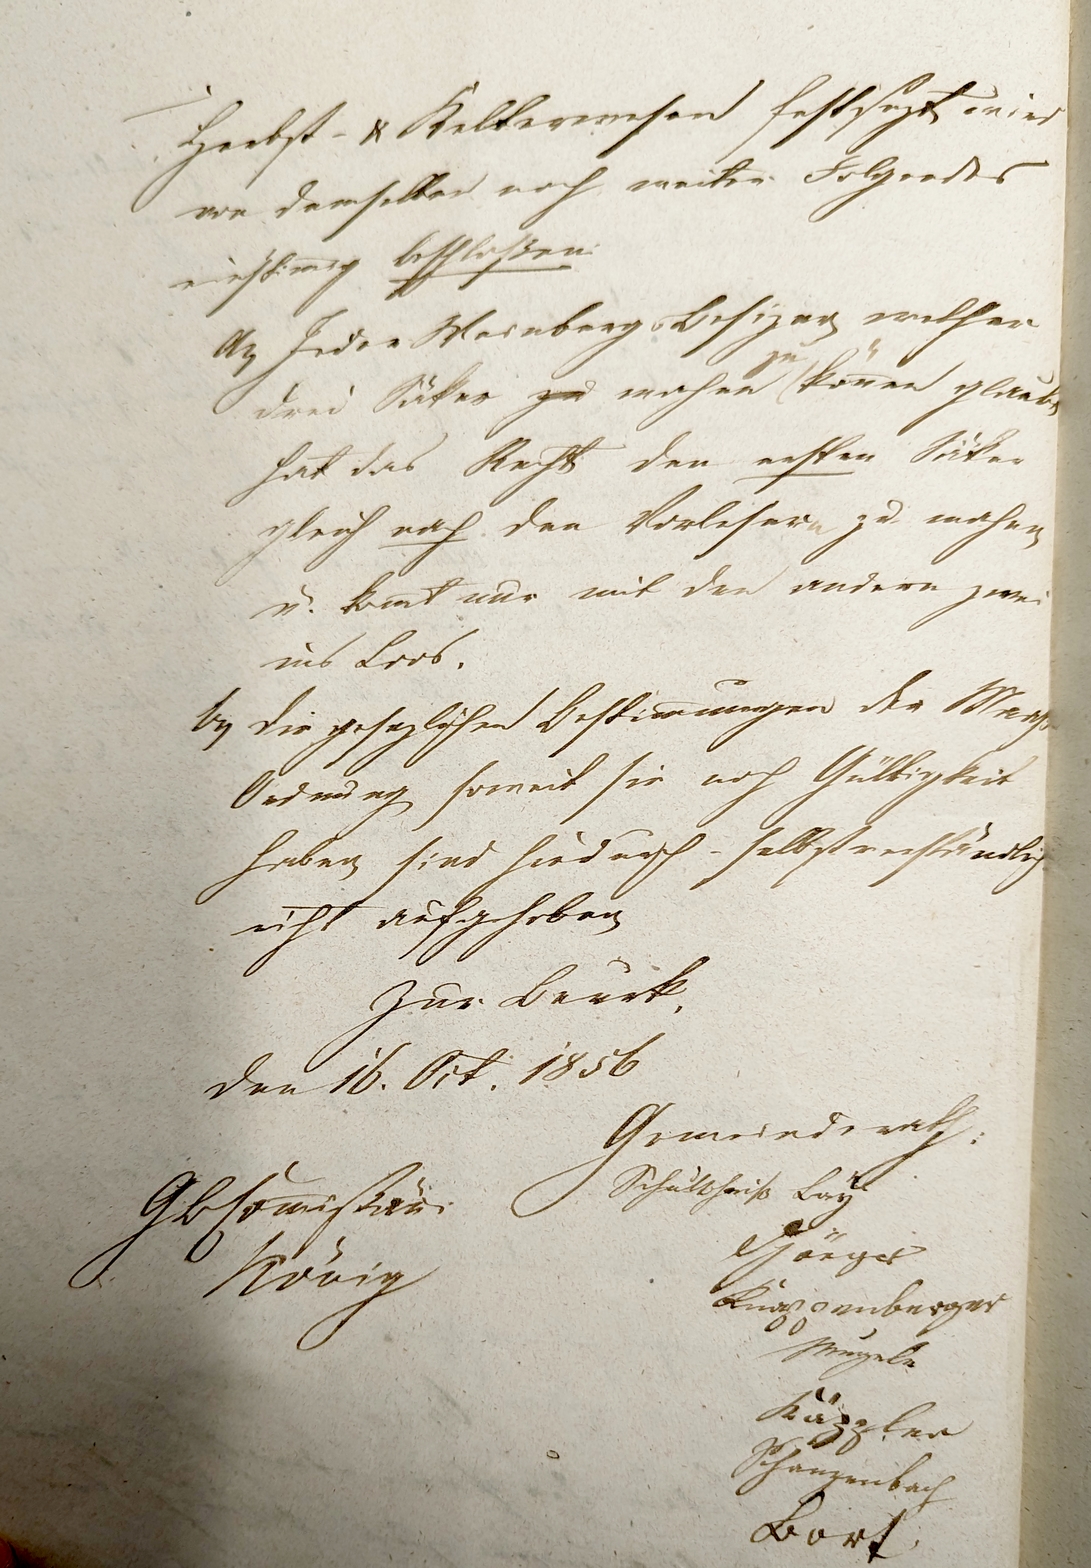 Herbst- & Kelterwesen festsezt wird
von demselben noch weiter Folgendes
einstimmig beschlossen:
a, Jeder Weinbergs Besizer welcher
drei Säker zu machen können glaubt
hat das Recht den ersten Säker
gleich nach den Vorlesern zu machen
u. komt nur mit den andern zwei
ins Loos.
b, die gesezlichen Bestimmungen der
Ordnung soweit sie noch Gültigkeit
haben sind hiedurch selbstverständlich
nicht aufgehoben
Zur Beurk.
den 16. Oct. 1856
Gemeinderath:
Schultheiß Lay
König
Görger
Kugelberger
Kägler
Schanzenbach
Bort